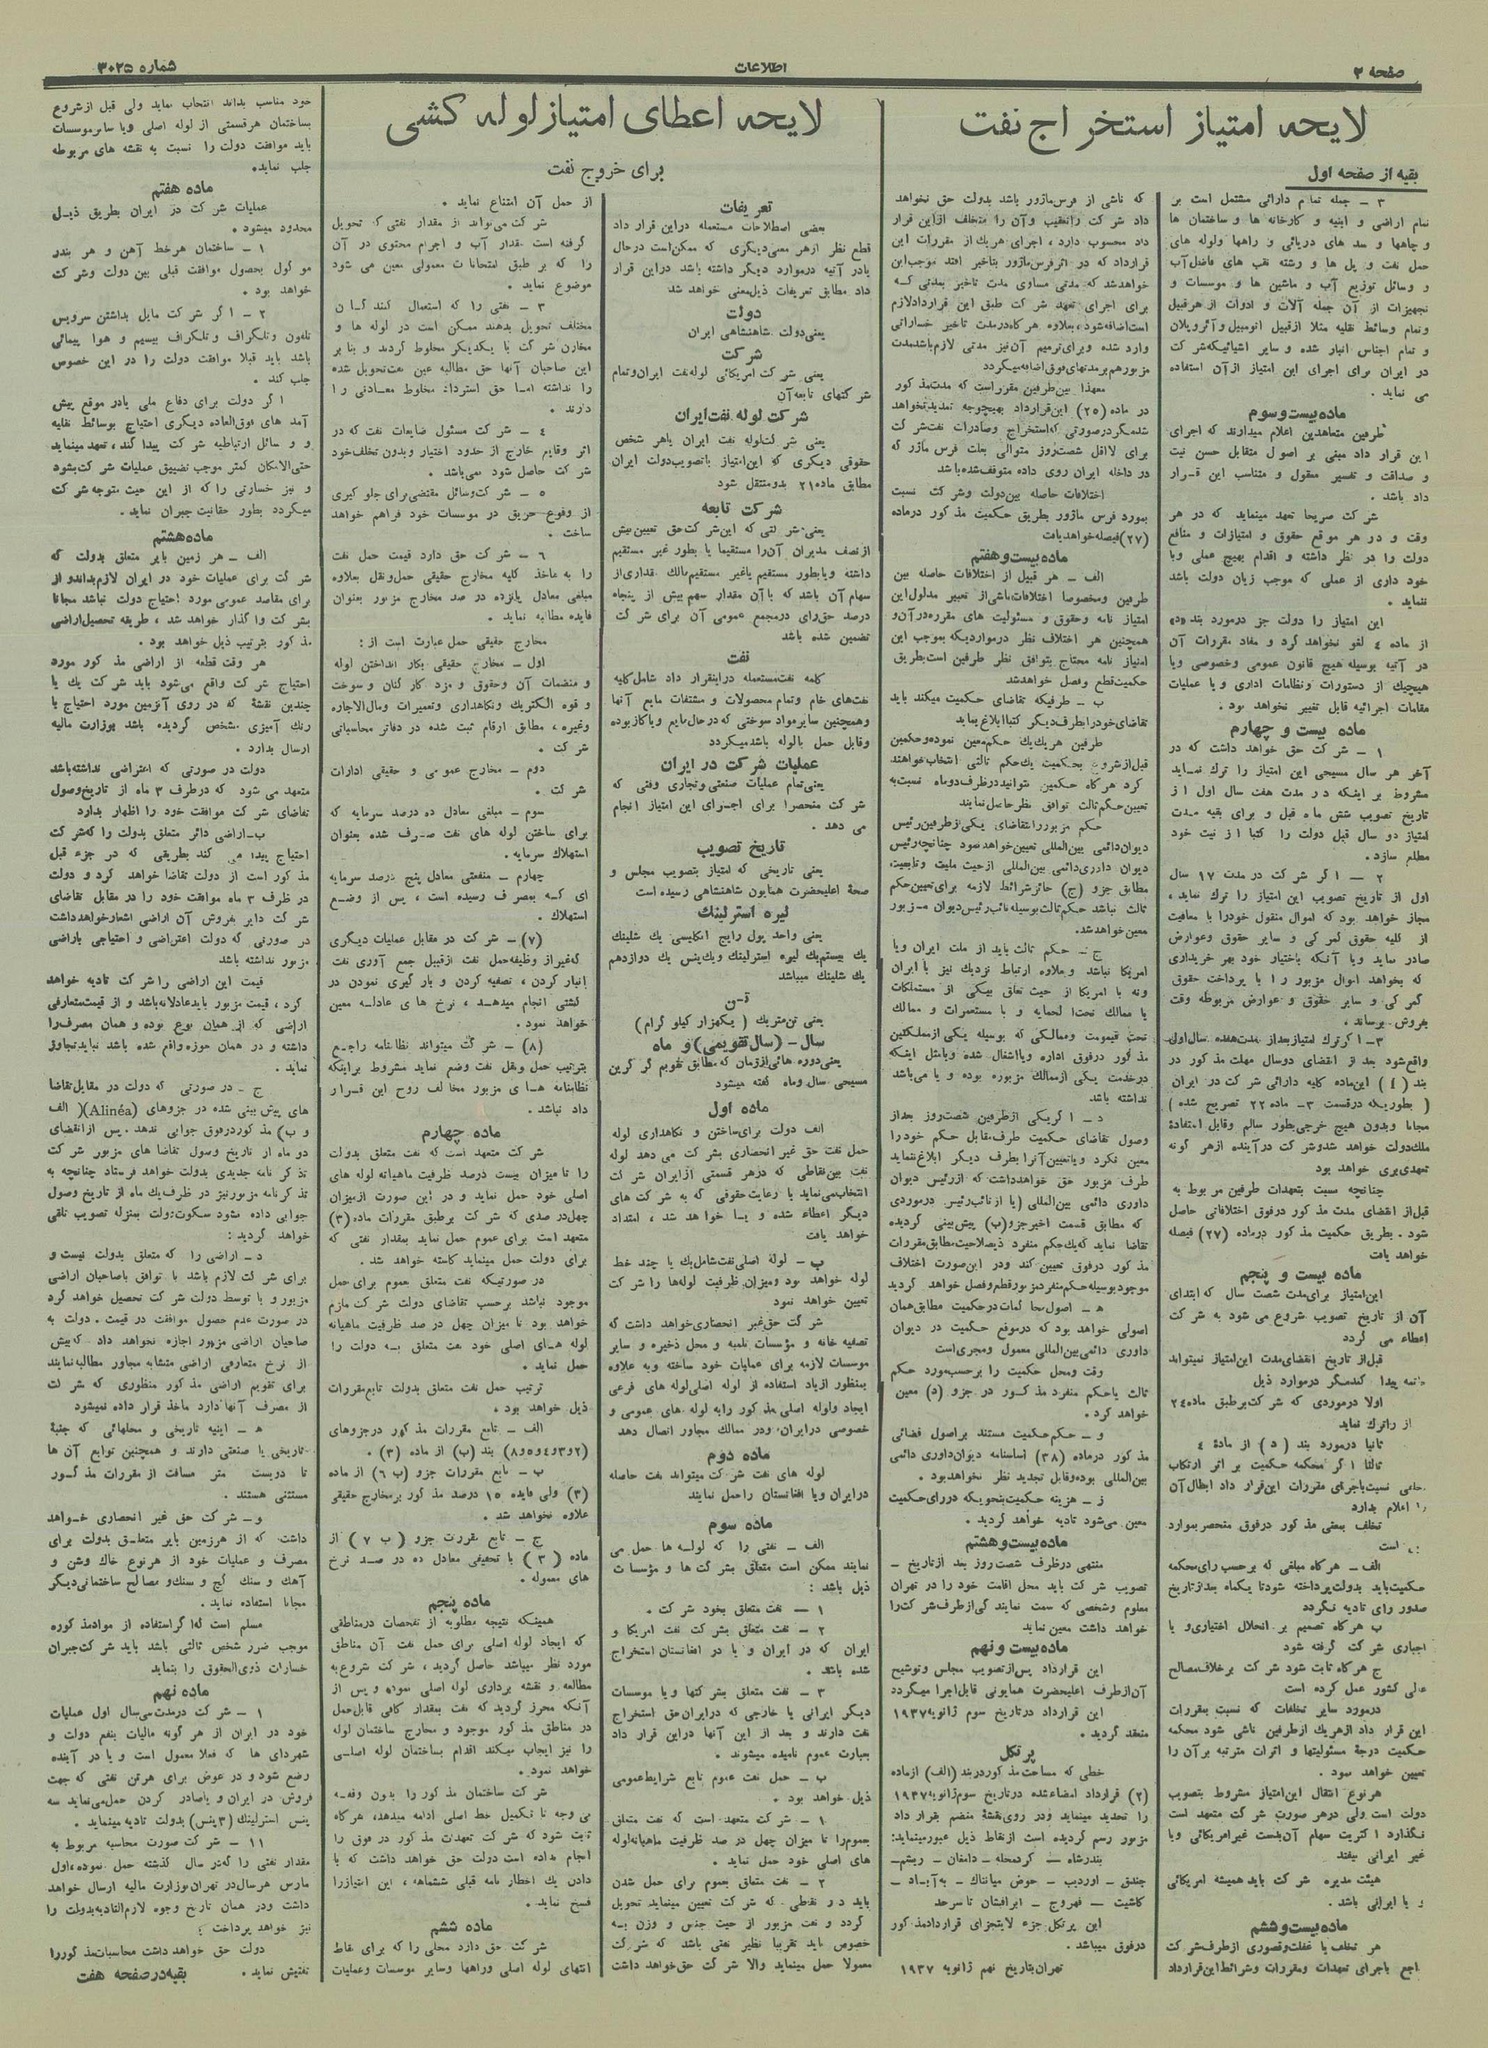 صفحه ۲
اطلاعات
شماره ۳۰۲۵
لایحه امتیاز استخراج نفت
بقیه از صفحه اول
۳ – جمله تمام دارائی مشتمل است بر
تمام اراضی و ابنیه و کارخانه ها و ساختمان ها
و چاهها و سد های دریائی و راهها ولوله های
حمل نفت و پل ها و رشته نقب های فاضل آب
و وسائل توزیع آب و ماشین ها و موسسات و
تجهیزات از آن جمله آلات و ادوات از هر قبیل
وتمام وسائط نقلیه مثلا از قبیل اتومبیل و آئروپلان
و تمام اجناس انبار شده و سایر اشیائیکه شرکت
در ایران برای اجرای این امتیاز از آن استفاده
می نماید .
ماده بیست وسوم
طرفین متعاهدین اعلام میدارند که اجرای
این قرار داد مبنی بر اصول متقابل حسن نیت
و صداقت و تفسیر معقول و متناسب این قرار
داد باشد .
شرکت صریحا تعهد مینماید که در هر
وقت و در هر موقع حقوق و امتیازات و منافع
دولت را در نظر داشته و اقدام بهیچ عملی ویا
خود داری از عملی که موجب زیان دولت باشد
ننماید .
این امتیاز را دولت جز درمورد بند «د»
از ماده ٤ لغو نخواهد کرد و مفاد مقررات آن
در آتیه بوسیله هیچ قانون عمومی وخصوصی ویا
هیچیک از دستورات ونظامات اداری و یا عملیات
مقامات اجرائیه قابل تغییر نخواهد بود .
ماده بیست و چهارم
۱ – شرکت حق خواهد داشت که در
آخر هر سال مسیحی این امتیاز را ترک نماید
مشروط بر اینکه در مدت هفت سال اول از
تاریخ تصویب شش ماه قبل و برای بقیه مدت
امتیاز دو سال قبل دولت را کتبا از نیت خود
مطلع سازد .
۲ – اگر شرکت در مدت ۱۷ سال
اول از تاریخ تصویب این امتیاز را ترک نماید ،
مجاز خواهد بود که اموال منقول خودرا با معافیت
از کلیه حقوق گمرکی و سایر حقوق وعوارض
صادر نماید ویا آنکه باختیار خود بهر خریداری
که بخواهد اموال مزبور را با پرداخت حقوق
گمرکی و سایر حقوق و عوارض مربوطه وقت
بفروش برساند .
۳ – اگر ترک امتیاز بعد از مدت هفده سال اول
واقع شود بعد از انقضای دوسال مهلت مذکور در
بند ( ٤ ) این ماده کلیه دارائی شرکت در ایران
( بطوریکه درقسمت ۳– ماده ۲۲ تصریح شده )
مجانا وبدون هیچ خرجی بطور سالم وقابل استفادۀ
ملک دولت خواهد شد و شرکت در آینده از هر گونه
تعهدی بری خواهد بود
چنانچه نسبت بتعهدات طرفین مربوط به
قبل از انقضای مدت مذکور درفوق اختلافاتی حاصل
شود . بطریق حکمیت مذکور درماده (۲۷) فیصله
خواهد یافت
ماده بیست و پنجم
این امتیاز برای مدت شصت سال که ابتدای
آن از تاریخ تصویب شروع می شود به شرکت
اعطاء می گردد
قبل از تاریخ انقضای مدت این امتیاز نمیتواند
خاتمه پیدا کند مگر درموارد ذیل
اولا درموردی که شرکت بر طبق ماده ۲٤
از راترک نماید
ثانیا درمورد بند ( د ) از مادۀ ٤
ثالثا اگر محکمه حکمیت بر اثر ارتکاب
تخلفی نسبت باجرای مقررات این قرار داد ابطال آن
را اعلام بدارد
تخلف بمعنی مذکور درفوق منحصر بموارد
است
الف – هرگاه مبلغی که برحسب رای محکمه
حکمیت باید بدولت پرداخته شود تا یکماه بعد از تاریخ
صدور رای تادیه نگردد
ب هرگاه تصمیم بر انحلال اختیاری و یا
اجباری شرکت گرفته شود
ج هرگاه ثابت شود شرکت برخلاف مصالح
عالی کشور عمل کرده است
درمورد سایر تخلفات که نسبت بمقررات
این قرار داد از هریک از طرفین ناشی شود محکمه
حکمیت درجۀ مسئولیتها و اثرات مترتبه بر آن را
تعیین خواهد نمود .
هر نوع انتقال این امتیاز مشروط بتصویب
دولت است ولی درهر صورت شرکت متعهد است
نگذارد اکثریت سهام آن بدست غیر امریکائی ویا
غیر ایرانی بیفتد
هیئت مدیره شرکت باید همیشه امریکائی
و یا ایرانی باشد .
ماده بیست وششم
هر تخلف یا غفلت و قصوری از طرف شرکت
راجع باجرای تعهدات ومقررات وشرائط این قرارداد
که ناشی از فرس ماژور باشد بدولت حق نخواهد
داد شرکت را تعقیب و آن را متخلف از این قرار
داد محسوب دارد ، اجرای هریک از مقررات این
قرارداد که در اثر فرس ماژور بتاخیر افتد موجب این
خواهد شد که مدتی مساوی مدت تاخیر بمدتی که
برای اجرای تعهد شرکت طبق این قرارداد لازم
است اضافه شود ، بعلاوه هرگاه درمدت تاخیر خساراتی
وارد شده وبرای ترمیم آن نیز مدتی لازم باشد مدت
مزبور هم برمدتهای فوق اضافه میگردد
معهذا بین طرفین مقرر است که مدت مذکور
در ماده (۲۵) این قرارداد بهیچوجه تمدید نخواهد
شد مگر درصورتی که استخراج وصادرات نفت شرکت
برای لااقل شصت روز متوالی بعلت فرس ماژور که
در داخله ایران روی داده متوقف شده باشد
اختلافات حاصله بین دولت وشرکت نسبت
بمورد فرس ماژور بطریق حکمیت مذکور درماده
(۲۷) فیصله خواهد یافت
ماده بیست و هفتم
الف – هر قبیل از اختلافات حاصله بین
طرفین ومخصوصا اختلافات ناشی از تعبیر مدلول این
امتیاز نامه وحقوق و مسئولیت های مقرره در آن و
همچنین هر اختلاف نظر در مواردیکه بموجب این
امتیاز نامه محتاج بتوافق نظر طرفین است بطریق
حکمیت قطع و فصل خواهد شد
ب – طرفیکه تقاضای حکمیت میکند باید
تقاضای خودرا بطرف دیگر کتبا ابلاغ نماید
طرفین هریک یک حکم معین نموده و حکمین
قبل از شروع بحکمیت یک حکم ثالثی انتخاب خواهند
کرد هرگاه حکمین نتوانند در ظرف دوماه نسبت به
تعیین حکم ثالث توافق نظر حاصل نمایند
حکم مزبور را بتقاضای یکی از طرفین رئیس
دیوان دائمی بین المللی تعیین خواهد نمود چنانچه رئیس
دیوان داوری دائمی بین المللی از حیث ملیت وتابعیت
مطابق جزو (ج) حائز شرائط لازمه برای تعیین حکم
ثالث نباشد حکم ثالث بوسیله نائب رئیس دیوان مزبور
معین خواهد شد .
ج – حکم ثالث باید از ملت ایران ویا
امریکا نباشد و بعلاوه ارتباط نزدیک نیز با ایران
ونه با امریکا از حیث تعلق بیکی از مستملکات
یا ممالک تحت الحمایه و با مستعمرات و ممالک
تحت قیمومت و ممالکی که بوسیله یکی از مملکتین
مذکور درفوق اداره ویا اشغال شده ویا مثل اینکه
درخدمت یکی از ممالک مزبوره بوده و یا می باشد
نداشته باشد
د – اگر یکی از طرفین شصت روز بعد از
وصول تقاضای حکمیت طرف مقابل حکم خود را
معین نکرد و یا تعیین آنرا بطرف دیگر ابلاغ ننماید
طرف مزبور حق خواهد داشت که از رئیس دیوان
داوری دائمی بین المللی (یا از نائب رئیس درموردی
که مطابق قسمت اخیر جزو (ب) پیش بینی گردیده
تقاضا نماید که یک حکم منفرد ذیصلاحیت مطابق مقررات
مذکور درفوق تعیین کند ودر این صورت اختلاف
موجود بوسیله حکم منفرد مزبور قطع و فصل خواهد گردید
ه – اصول محاکمات درحکمیت مطابق همان
اصولی خواهد بود که درموقع حکمیت در دیوان
داوری دائمی بین المللی معمول ومجری است
وقت ومحل حکمیت را برحسب مورد حکم
ثالث یا حکم منفرد مذکور در جزو (د) معین
خواهد کرد .
و – حکم حکمیت مستند بر اصول قضائی
مذکور درماده (۳۸) اساسنامه دیوان داوری دائمی
بین المللی بوده وقابل تجدید نظر نخواهد بود .
ز – هزینه حکمیت بنحویکه دررای حکمیت
معین می شود تادیه خواهد گردید .
ماده بیست وهشتم
منتهی درظرف شصت روز بعد از تاریخ –
تصویب شرکت باید محل اقامت خود را در تهران
معلوم وشخصی که سمت نمایندگی از طرف شرکت را
خواهد داشت معین نماید
ماده بیست و نهم
این قرارداد پس از تصویب مجلس وتوشیح
آن از طرف اعلیحضرت همایونی قابل اجرا میگردد
این قرارداد درتاریخ سوم ژانویه ۱۹۳۷
منعقد گردید .
پرتکل
خطی که مساحت مذکور در بند (الف) از ماده
(۲) قرارداد امضاء شده درتاریخ سوم ژانویه ۱۹۳۷
را تحدید مینماید ودر روی نقشۀ منضم بقرار داد
مزبور رسم گردیده است از نقاط ذیل عبور مینماید:
بندرشاه – کردمحله – دامغان – رشم–
جندق – اوردیب – حوض میانتاک – به آباد –
کاشیت – فهروج – ایرافشان تا سرحد
این پرتکل جزء لایتجزای قرارداد مذکور
درفوق میباشد .
تهران بتاریخ نهم ژانویه ۱۹۳۷
لایحه اعطای امتیاز لوله کشی
برای خروج نفت
تعریفات
بعضی اصطلاحات مستعمله در این قرار داد
قطع نظر از هر معنی دیگری که ممکن است درحال
یا در آتیه درموارد دیگر داشته باشد در این قرار
داد مطابق تعریفات ذیل معنی خواهد شد
دولت
یعنی دولت شاهنشاهی ایران
شرکت
یعنی شرکت امریکائی لوله نفت ایران وتمام
شرکتهای تابعه آن
شرکت لوله نفت ایران
یعنی شرکت لوله نفت ایران یا هر شخص
حقوقی دیگری که این امتیاز با تصویب دولت ایران
مطابق ماده ۲۱ بدو منتقل شود
شرکت تابعه
یعنی شرکتی که این شرکت حق تعیین بیش
از نصف مدیران آن را مستقیما یا بطور غیر مستقیم
داشته ویا بطور مستقیم یا غیر مستقیم مالک مقداری از
سهام آن باشد که با آن مقدار سهم بیش از پنجاه
درصد حق رای در مجمع عمومی آن برای شرکت
تضمین شده باشد
نفت
کلمه نفت مستعمله در اینقرار داد شامل کلیه
نفت های خام وتمام محصولات و مشتقات مایع آنها
وهمچنین سایر مواد سوختی که درحال مایع ویا گاز بوده
وقابل حمل بالوله باشد میگردد
عملیات شرکت در ایران
یعنی تمام عملیات صنعتی و تجاری وفنی که
شرکت منحصرا برای اجرای این امتیاز انجام
می دهد .
تاریخ تصویب
یعنی تاریخی که امتیاز بتصویب مجلس و
صحۀ اعلیحضرت همایون شاهنشاهی رسیده است
لیره استرلینک
یعنی واحد پول رایج انگلیسی یک شلینک
یک بیستم یک لیره استرلینک ویک پنس یک دوازدهم
یک شلینک میباشد
تن
یعنی تن متریک ( یکهزار کیلو گرام )
سال – (سال تقویمی) و ماه
یعنی دوره هائی از زمان که مطابق تقویم گرگرین
مسیحی سال وماه گفته میشود
ماده اول
الف دولت برای ساختن و نگاهداری لوله
حمل نفت حق غیر انحصاری بشرکت می دهد لوله
نفت بین نقاطی که درهر قسمتی از ایران شرکت
انتخاب می نماید با رعایت حقوقی که به شرکت های
دیگر اعطاء شده و یا خواهد شد ، امتداد
خواهد یافت
ب – لولۀ اصلی نفت شامل یک یا چند خط
لوله خواهد بود ومیزان ظرفیت لوله ها را شرکت
تعیین خواهد نمود
شرکت حق غیر انحصاری خواهد داشت که
تصفیه خانه و مؤسسات تلمبه و محل ذخیره و سایر
موسسات لازمه برای عملیات خود ساخته و به علاوه
بمنظور ازیاد استفاده از لوله اصلی لوله های فرعی
ایجاد ولوله اصلی مذکور را به لوله های عمومی و
خصوصی در ایران ودر ممالک مجاور اتصال دهد
ماده دوم
لوله های نفت شرکت میتواند نفت حاصله
در ایران ویا افغانستان را حمل نمایند
ماده سوم
الف – نفتی را که لوله ها حمل می
نمایند ممکن است متعلق بشرکت ها و مؤسسات
ذیل باشد :
۱ – نفت متعلق بخود شرکت .
۲ – نفت متعلق بشرکت نفت امریکا و
ایران که در ایران و یا در افغانستان استخراج
شده باشد .
۳ – نفت متعلق بشرکتها ویا موسسات
دیگر ایرانی یا خارجی که در ایران حق استخراج
نفت دارند و بعد از این آنها در این قرار داد
بعبارت عموم نامیده میشوند .
ب – حمل نفت عموم تابع شرایط عمومی
ذیل خواهد بود .
۱ – شرکت متعهد است که نفت متعلق
بعموم را تا میزان چهل در صد ظرفیت ماهیانه لوله
های اصلی خود حمل نماید .
۲ – نفت متعلق بعموم برای حمل شدن
باید در نقاطی که شرکت تعیین مینماید تحویل
گردد و نفت مزبور از حیث جنس و وزن به
خصوص باید تقریبا نظیر نفتی باشد که شرکت
معمولا حمل مینماید والا شرکت حق خواهد داشت
از حمل آن امتناع نماید .
شرکت می‌تواند از مقدار نفتی که تحویل
گرفته است مقدار آب و اجرام محتوی در آن
را که بر طبق امتحانات معمولی معین می شود
موضوع نماید .
۳ – نفتی را که استعمال کنندگان
مختلف تحویل بدهند ممکن است در لوله ها و
مخازن شرکت با یکدیگر مخلوط گردند و بنا بر
این صاحبان آنها حق مطالبه عین نفت تحویل شده
را نداشته اما حق استرداد مخلوط معادلی را
دارند .
٤ – شرکت مسئول ضایعات نفت که در
اثر وقایع خارج از حدود اختیار وبدون تخلف خود
شرکت حاصل شود نمی باشد .
۵ – شرکت وسائل مقتضی برای جلوگیری
از وقوع حریق در موسسات خود فراهم خواهد
ساخت .
٦ – شرکت حق دارد قیمت حمل نفت
را به ماخذ کلیه مخارج حقیقی حمل و نقل بعلاوه
مبلغی معادل پانزده در صد مخارج مزبور بعنوان
فایده مطالبه نماید .
مخارج حقیقی حمل عبارت است از :
اول – مخارج حقیقی بکار انداختن لوله
و منضمات آن وحقوق و مزد کارکنان و سوخت
و قوه الکتریک ونگاهداری وتعمیرات ومال الاجاره
وغیره ، مطابق ارقام ثبت شده در دفاتر محاسباتی
شرکت .
دوم – مخارج عمومی و حقیقی ادارات
شرکت .
سوم – مبلغی معادل ده درصد سرمایه که
برای ساختن لوله های نفت صرف شده بعنوان
استهلاک سرمایه .
چهارم – منفعتی معادل پنج درصد سرمایه
ای که بمصرف رسیده است ، پس از وضع
استهلاک .
(۷) – شرکت در مقابل عملیات دیگری
که غیر از وظیفه حمل نفت از قبیل جمع آوری نفت
انبار کردن ، تصفیه کردن و بار گیری نمودن در
کشتی انجام میدهد ، نرخ های عادله معین
خواهد نمود .
(۸) – شرکت میتواند نظامنامه راجع
بترتیب حمل ونقل نفت وضع نماید مشروط بر اینکه
نظامنامه های مزبور مخالف روح این قرار
داد نباشد .
ماده چهارم
شرکت متعهد است که نفت متعلق بدولت
را تا میزان بیست درصد ظرفیت ماهیانه لوله های
اصلی خود حمل نماید و در این صورت از میزان
چهل درصدی که شرکت بر طبق مقررات ماده (۳)
متعهد است برای عموم حمل نماید بمقدار نفتی که
برای دولت حمل مینماید کاسته خواهد شد .
در صورتیکه نفت متعلق عموم برای حمل
موجود نباشد برحسب تقاضای دولت شرکت ملزم
خواهد بود تا میزان چهل در صد ظرفیت ماهیانه
لوله های اصلی خود نفت متعلق به دولت را
حمل نماید .
ترتیب حمل نفت متعلق بدولت تابع مقررات
ذیل خواهد بود .
الف – تابع مقررات مذکور در جزوهای
(۲و۳و٤و۵و۸) بند (ب) از ماده (۳) .
ب – تابع مقررات جزو (ب ٦) از ماده
(۳) ولی فایده ۱۵ درصد مذکور بر مخارج حقیقی
علاوه نخواهد شد .
ج – تابع مقررات جزو ( ب ۷ ) از
ماده ( ۳ ) با تخفیفی معادل ده در صد نرخ
های معموله .
ماده پنجم
همینکه نتیجه مطلوبه از تفحصات درمناطقی
که ایجاد لوله اصلی برای حمل نفت آن مناطق
مورد نظر میباشد حاصل گردید ، شرکت شروع به
مطالعه و نقشه برداری لوله اصلی نموده و پس از
آنکه محرز گردید که نفت بمقدار کافی قابل حمل
در مناطق مذکور موجود و مخارج ساختمان لوله
را نیز ایجاب میکند اقدام بساختمان لوله اصلی
خواهد نمود .
شرکت ساختمان مذکور را بدون وقفه
می وجه تا تکمیل خط اصلی ادامه میدهد ، هرگاه
ثابت شود که شرکت تعهدت مذکور در فوق را
انجام نداده است دولت حق خواهد داشت که با
دادن یک اخطار نامه قبلی ششماهه ، این امتیاز را
فسخ نماید .
ماده ششم
شرکت حق دارد محلی را که برای نقاط
انتهای لوله اصلی وراهها وسایر موسسات وعملیات
خود مناسب بداند انتخاب نماید ولی قبل از شروع
بساختمان هر قسمتی از لوله اصلی ویا سایر موسسات
باید موافقت دولت را نسبت به نقشه های مربوطه
جلب نماید .
ماده هفتم
عملیات شرکت در ایران بطریق ذیل
محدود میشود .
۱ – ساختمان هر خط آهن و هر بندر
موکول بحصول موافقت قبلی بین دولت وشرکت
خواهد بود .
۲ – اگر شرکت مایل بداشتن سرویس
تلفون وتلگراف و تلگراف بیسیم و هوا پیمائی
باشد باید قبلا موافقت دولت را در این خصوص
جلب کند .
اگر دولت برای دفاع ملی یا در موقع پیش
آمد های فوق العاده دیگری احتیاج بوسائط نقلیه
و وسائل ارتباطیه شرکت پیدا کند ، تعهد مینماید
حتی الامکان کمتر موجب تضییق عملیات شرکت بشود
و نیز خسارتی را که از این حیث متوجه شرکت
میگردد بطور حقانیت جبران نماید .
ماده هشتم
الف – هر زمین بایر متعلق بدولت که
شرکت برای عملیات خود در ایران لازم بداند و از
برای مقاصد عمومی مورد احتیاج دولت نباشد مجانا
بشرکت واگذار خواهد شد ، طریقه تحصیل اراضی
مذکور بترتیب ذیل خواهد بود .
هر وقت قطعه از اراضی مذکور مورد
احتیاج شرکت واقع می‌شود باید شرکت یک یا
چندین نقشۀ که در روی آنزمین مورد احتیاج با
رنک آمیزی مشخص گردیده باشد بوزارت مالیه
ارسال بدارد .
دولت در صورتی که اعتراضی نداشته باشد
متعهد می شود که درظرف ۳ ماه از تاریخ وصول
تقاضای شرکت موافقت خود را اظهار بدارد
ب – اراضی دائر متعلق بدولت را که شرکت
احتیاج پیدا می کند بطریقی که در جزء قبل
مذکور است از دولت تقاضا خواهد کرد و دولت
در ظرف ۳ ماه موافقت خود را در مقابل تقاضای
شرکت دایر بفروش آن اراضی اشعار خواهد داشت
در صورتی که دولت اعتراضی و احتیاجی باراضی
مزبور نداشته باشد
قیمت این اراضی را شرکت تادیه خواهد
کرد ، قیمت مزبور باید عادلانه باشد و از قیمت متعارفی
اراضی که از همان نوع بوده و همان مصرف را
داشته و در همان حوزه واقع شده باشد نباید تجاوز
نماید .
ج – در صورتی که دولت در مقابل تقاضا
های پیش بینی شده در جزوهای (Alinéa)( الف
و ب) مذکور در فوق جوابی ندهد . پس از انقضای
دو ماه از تاریخ وصول تقاضا های مزبور شرکت
تذکر نامه جدیدی بدولت خواهد فرستاد چنانچه به
تذکر نامه مزبور نیز در ظرف یک ماه از تاریخ وصول
جوابی داده نشود سکوت دولت بمنزله تصویب تلقی
خواهد گردید :
د – اراضی را که متعلق بدولت نیست و
برای شرکت لازم باشد با توافق با صاحبان اراضی
مزبور و با توسط دولت شرکت تحصیل خواهد کرد
در صورت عدم حصول موافقت در قیمت . دولت به
صاحبان اراضی مزبور اجازه نخواهد داد که بیش
از نرخ متعارفی اراضی متشابه مجاور مطالبه نمایند
برای تقویم اراضی مذکور منظوری که شرکت
از مصرف آنها دارد ماخذ قرار داده نمیشود
ه – ابنیه تاریخی و محلهائی که جنبۀ
تاریخی یا صنعتی دارند و همچنین توابع آن ها
تا دویست متر مسافت از مقررات مذکور
مستثنی هستند .
و – شرکت حق غیر انحصاری خواهد
داشت که از هر زمین بایر متعلق بدولت برای
مصرف و عملیات خود از هر نوع خاک وشن و
آهک و سنک گچ و سنک و مصالح ساختمانی دیگر
مجانا استفاده نماید .
مسلم است که اگر استفاده از مواد مذکوره
موجب ضرر شخص ثالثی باشد باید شرکت جبران
خسارات ذوی الحقوق را بنماید
ماده نهم
۱ – شرکت درمدت سی سال اول عملیات
خود در ایران از هر گونه مالیات بنفع دولت و
شهرداری ها که فعلا معمول است و یا در آینده
وضع شود و در عوض برای هر تن نفتی که جهت
فروش در ایران و یا صادر کردن حمل می نماید سه
پنس استرلینک (۳ پنس) بدولت تادیه مینماید .
۱۱ – شرکت صورت محاسبه مربوط به
مقدار نفتی را که در سال گذشته حمل نموده ، اول
مارس هر سال در تهران بوزارت مالیه ارسال خواهد
داشت ودر همان تاریخ وجوه لازم التادیه بدولت را
نیز خواهد پرداخت :
دولت حق خواهد داشت محاسبات مذکور را
تفتیش نماید .
بقیه در صفحه هفت